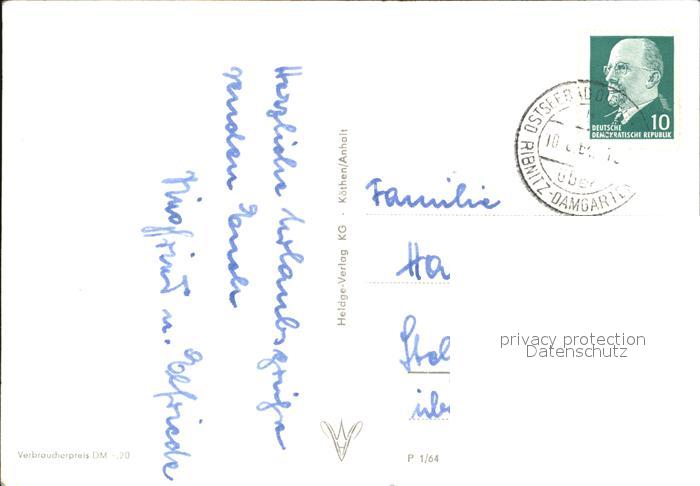 Herzliche Urlaubsgrüße
senden Euch
Siegfried u. Elfriede
Heldge-Verlag KG · Köthen/Anhalt
Verbraucherpreis DM -,20
P 1/64
10
DEUTSCHE
DEMOKRATISCHE REPUBLIK
OSTSEEBAD
über
RIBNITZ-DAMGARTEN
Familie
Ha
privacy protection
Datenschutz
übe